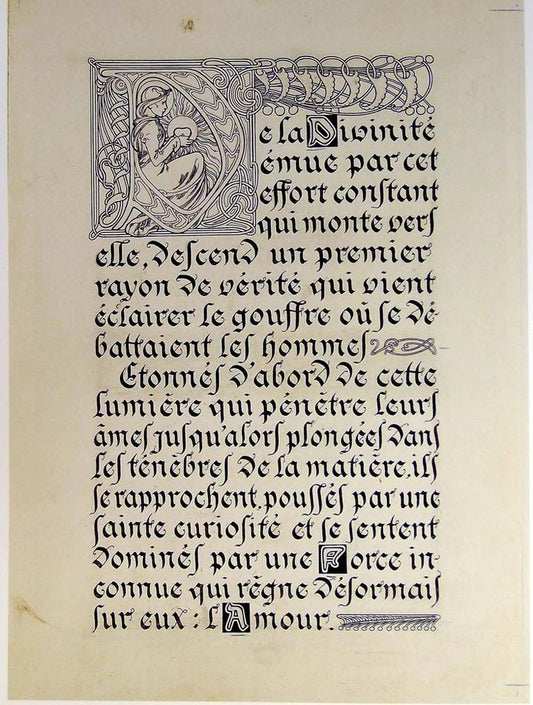 De la Divinité
émue par cet
effort constant
qui monte vers
elle, descend un premier
rayon de vérité qui vient
éclairer le gouffre où se dé-
battaient les hommes
Etonnés d'abord de cette
lumière qui pénètre leurs
âmes jusqu'alors plongées dans
les ténèbres de la matière, ils
se rapprochent, poussés par une
sainte curiosité et se sentent
dominés par une Force in-
connue qui règne désormais
sur eux : l'Amour.